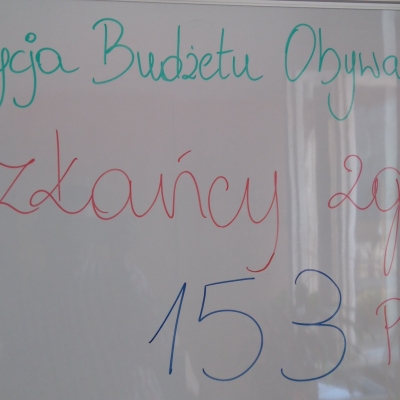 ycja Budżetu Obywa
szkańcy zg
153 P